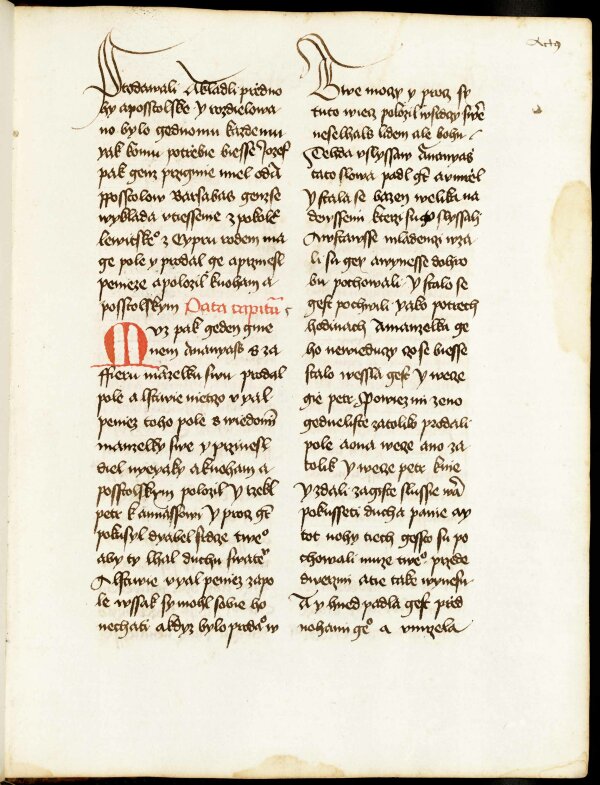 Actꝯ
Prodawali Akladli przědno
hy aposstolske y rozdielowa
no bylo gednomu kazdemu
yak komu potrzebie biesse Jozeſ
pak genz przigmie miel od A
Posstolow Barsabas genzse
wyklada vtiessenie z pokolē
lewitske° z Cypru rodem ma
ge pole y prodal ge aprzinesl
penieze apolozil knoham a
posstolskym Pata capitu
Muz pak geden gme
nem Ananyass s za
ffieru manzelku swu prodal
pole a lstiwie nietco vyal
peniez toho pole s wiedomi
manzelky swe y przinesl
diel nyeyaky aknoham a
posstolskym polozil y rzekl
petr k annassowi y procz gt
pokusyl dyabel srdcze twe°
aby ty lhal duchu swate
A lstiwie vyal peniez zapo
le wssak symohl sobie ho
nechati akdyz bylo proda° w
Twe moczy y procz sy
tuto wiecz polozil wsrdczy swe
neselhals lidem ale bohu
Tehda vslyssaw Ananyas
tato slowa padl gt avmrzel
y stala se bazen welika na
dewssemi kterzi su slyssali
Awstawsse mladenczi wza
li su gey awynesse dobro
hu pochowali y stalo se
gest pochwili yako potrzech
hodinach Amanzelka ge
ho newieduczy czo se biesse
stalo wessla gest y wecze
gie petr Powiez mi zeno
gednelistte zatoliko prodali
pole aona wecze ano za
tolik y wecze petr knie
y zdali zagiste slussie wa
pokusseti ducha panie ay
tot nohy tiech gessto su po
chowali muze twe° przede
dwerzmi atie take wynesu
A y hned padla gest przed
nohami ge° a vmrzela